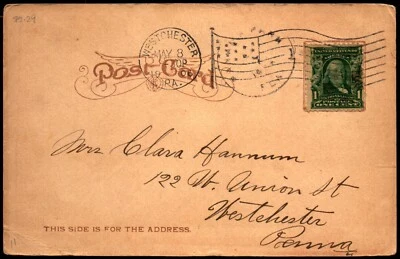 WESTCHESTER
MAY 8
PA
Post Card
1 ONE CENT 1
Mrs Clara Hannum
122 W. Union St
Westchester
Penna
THIS SIDE IS FOR THE ADDRESS.
11